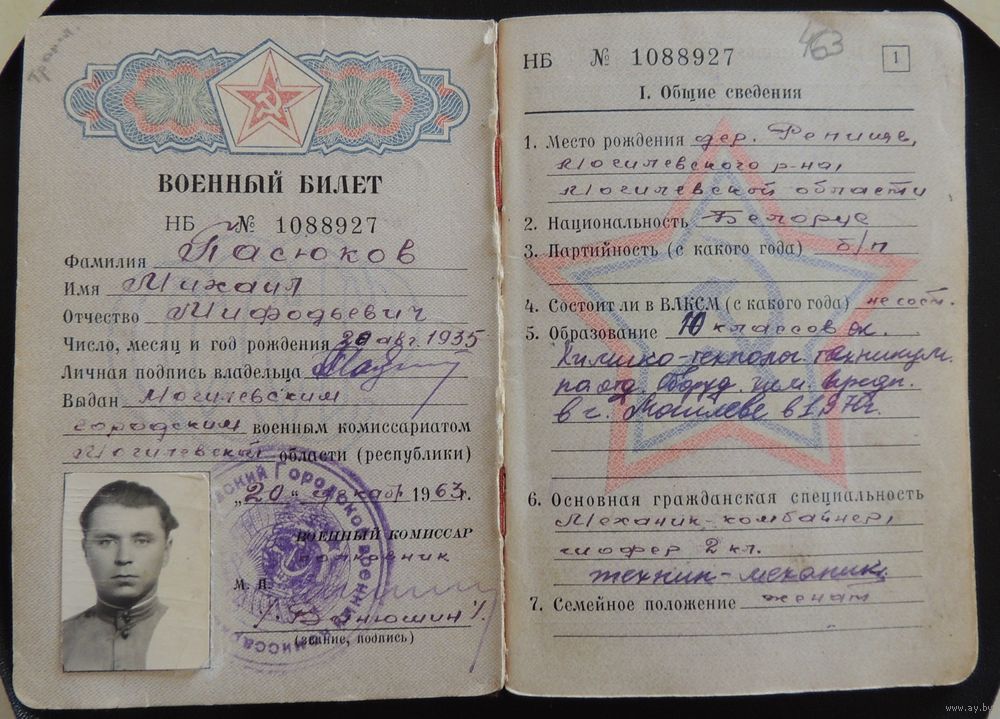 ВОЕННЫЙ БИЛЕТ
НБ № 1088927
Фамилия Пасюков
Имя Михаил
Отчество Мифодьевич
Число, месяц и год рождения 30 авг. 1935
Личная подпись владельца
Выдан Могилевским
городским военным комиссариатом
Могилевской области (республики)
„20" декабр 1963г.
ВОЕННЫЙ КОМИССАР
полковник
М. П.
/Ванюшин/
(звание, подпись)
НБ № 1088927
463
1
I. Общие сведения
1. Место рождения дер.
Могилевского р-на,
Могилевской области
2. Национальность Белорус
3. Партийность (с какого года) б/п
4. Состоит ли в ВЛКСМ (с какого года) не сост.
5. Образование 10 классов
Химико-технолог. техникум
по отд. Оборуд. хим. предп.
в г. Могилеве в 1970г.
6. Основная гражданская специальность
Механик-комбайнер,
шофер 2 кл.
техник-механик
7. Семейное положение женат
www.ay.by